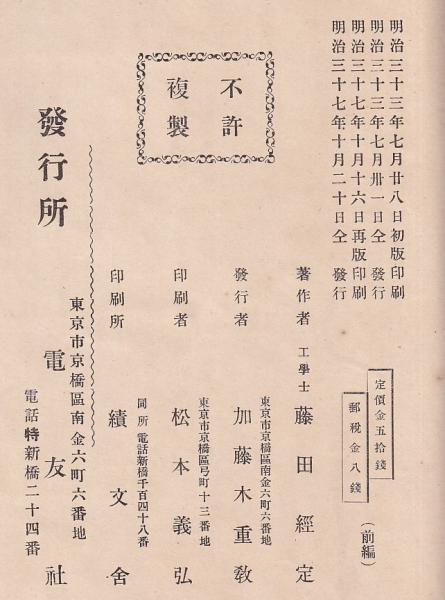 明治三十三年七月廿八日初版印刷
明治三十三年七月卅一日仝發行
明治三十七年十月十六日再版印刷
明治三十七年十月二十日仝發行
定價金五拾錢
郵税金八錢
(前編)
不許
複製
著作者 工學士 藤田經定
東京市京橋區南金六町六番地
發行者 加藤木重敎
東京市京橋區弓町十三番地
印刷者 松本義弘
同所 電話新橋千百四十八番
印刷所 績文舍
發行所
東京市京橋區南金六町六番地
電友社
電話特新橋二十四番